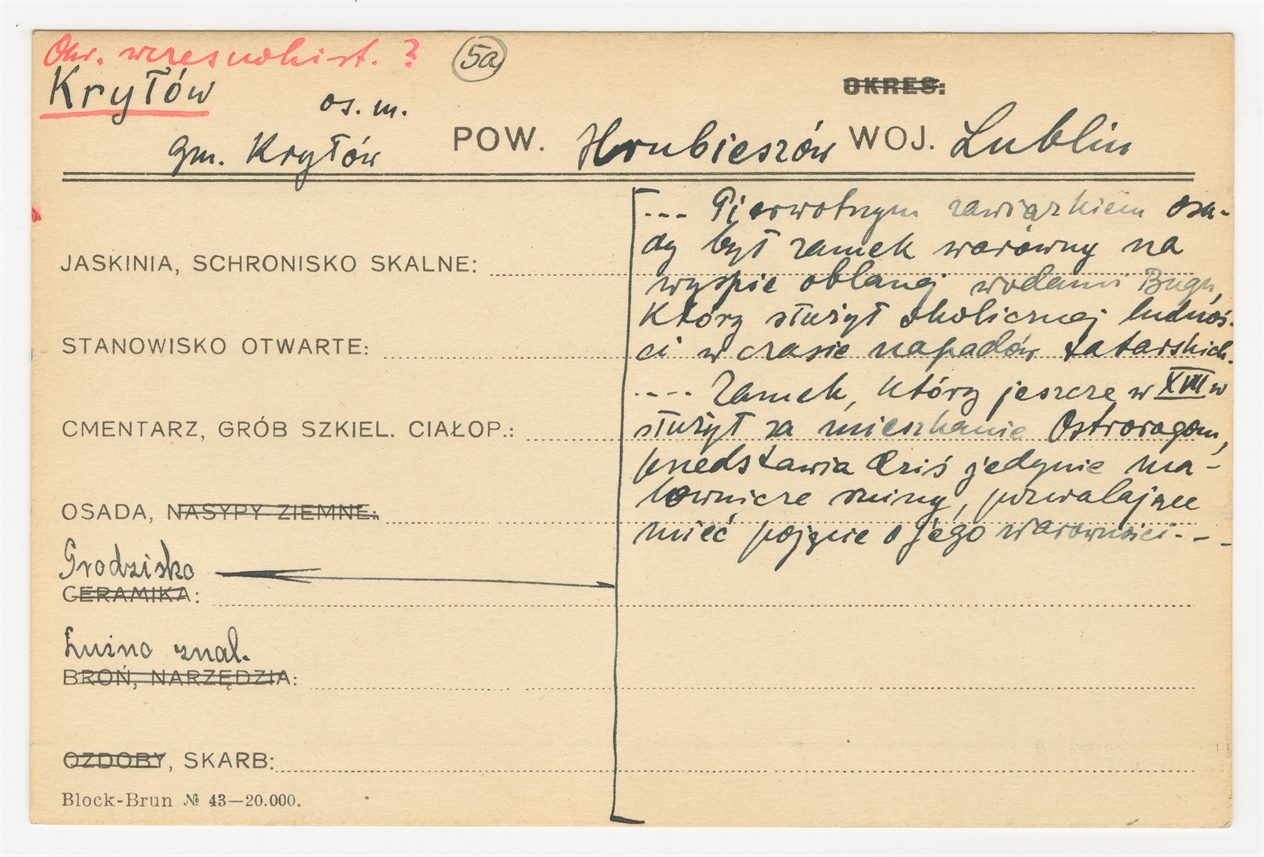 Okr. wczesnohist. ?
5a
Kryłów
os. m.
OKRES:
gm. Kryłów POW. Hrubieszów WOJ. Lublin
JASKINIA, SCHRONISKO SKALNE:
STANOWISKO OTWARTE:
CMENTARZ, GRÓB SZKIEL. CIAŁOP.:
OSADA, NASYPY ZIEMNE:
Grodzisko
CERAMIKA:
Luźno znal.
BROŃ, NARZĘDZIA:
OZDOBY, SKARB:
Block-Brun № 43—20.000.
--- Pierwotnym zawiązkiem osa-
dy był zamek warowny na
wyspie oblanej wodami Bugu,
który służył okolicznej ludnoś-
ci w czasie napadów tatarskich.
---- Zamek, który jeszcze w XVIII w
służył za mieszkanie Ostrorogom,
przedstawia dziś jedynie ma-
lownicze ruiny, pozwalające
mieć pojęcie o jego warowności.--